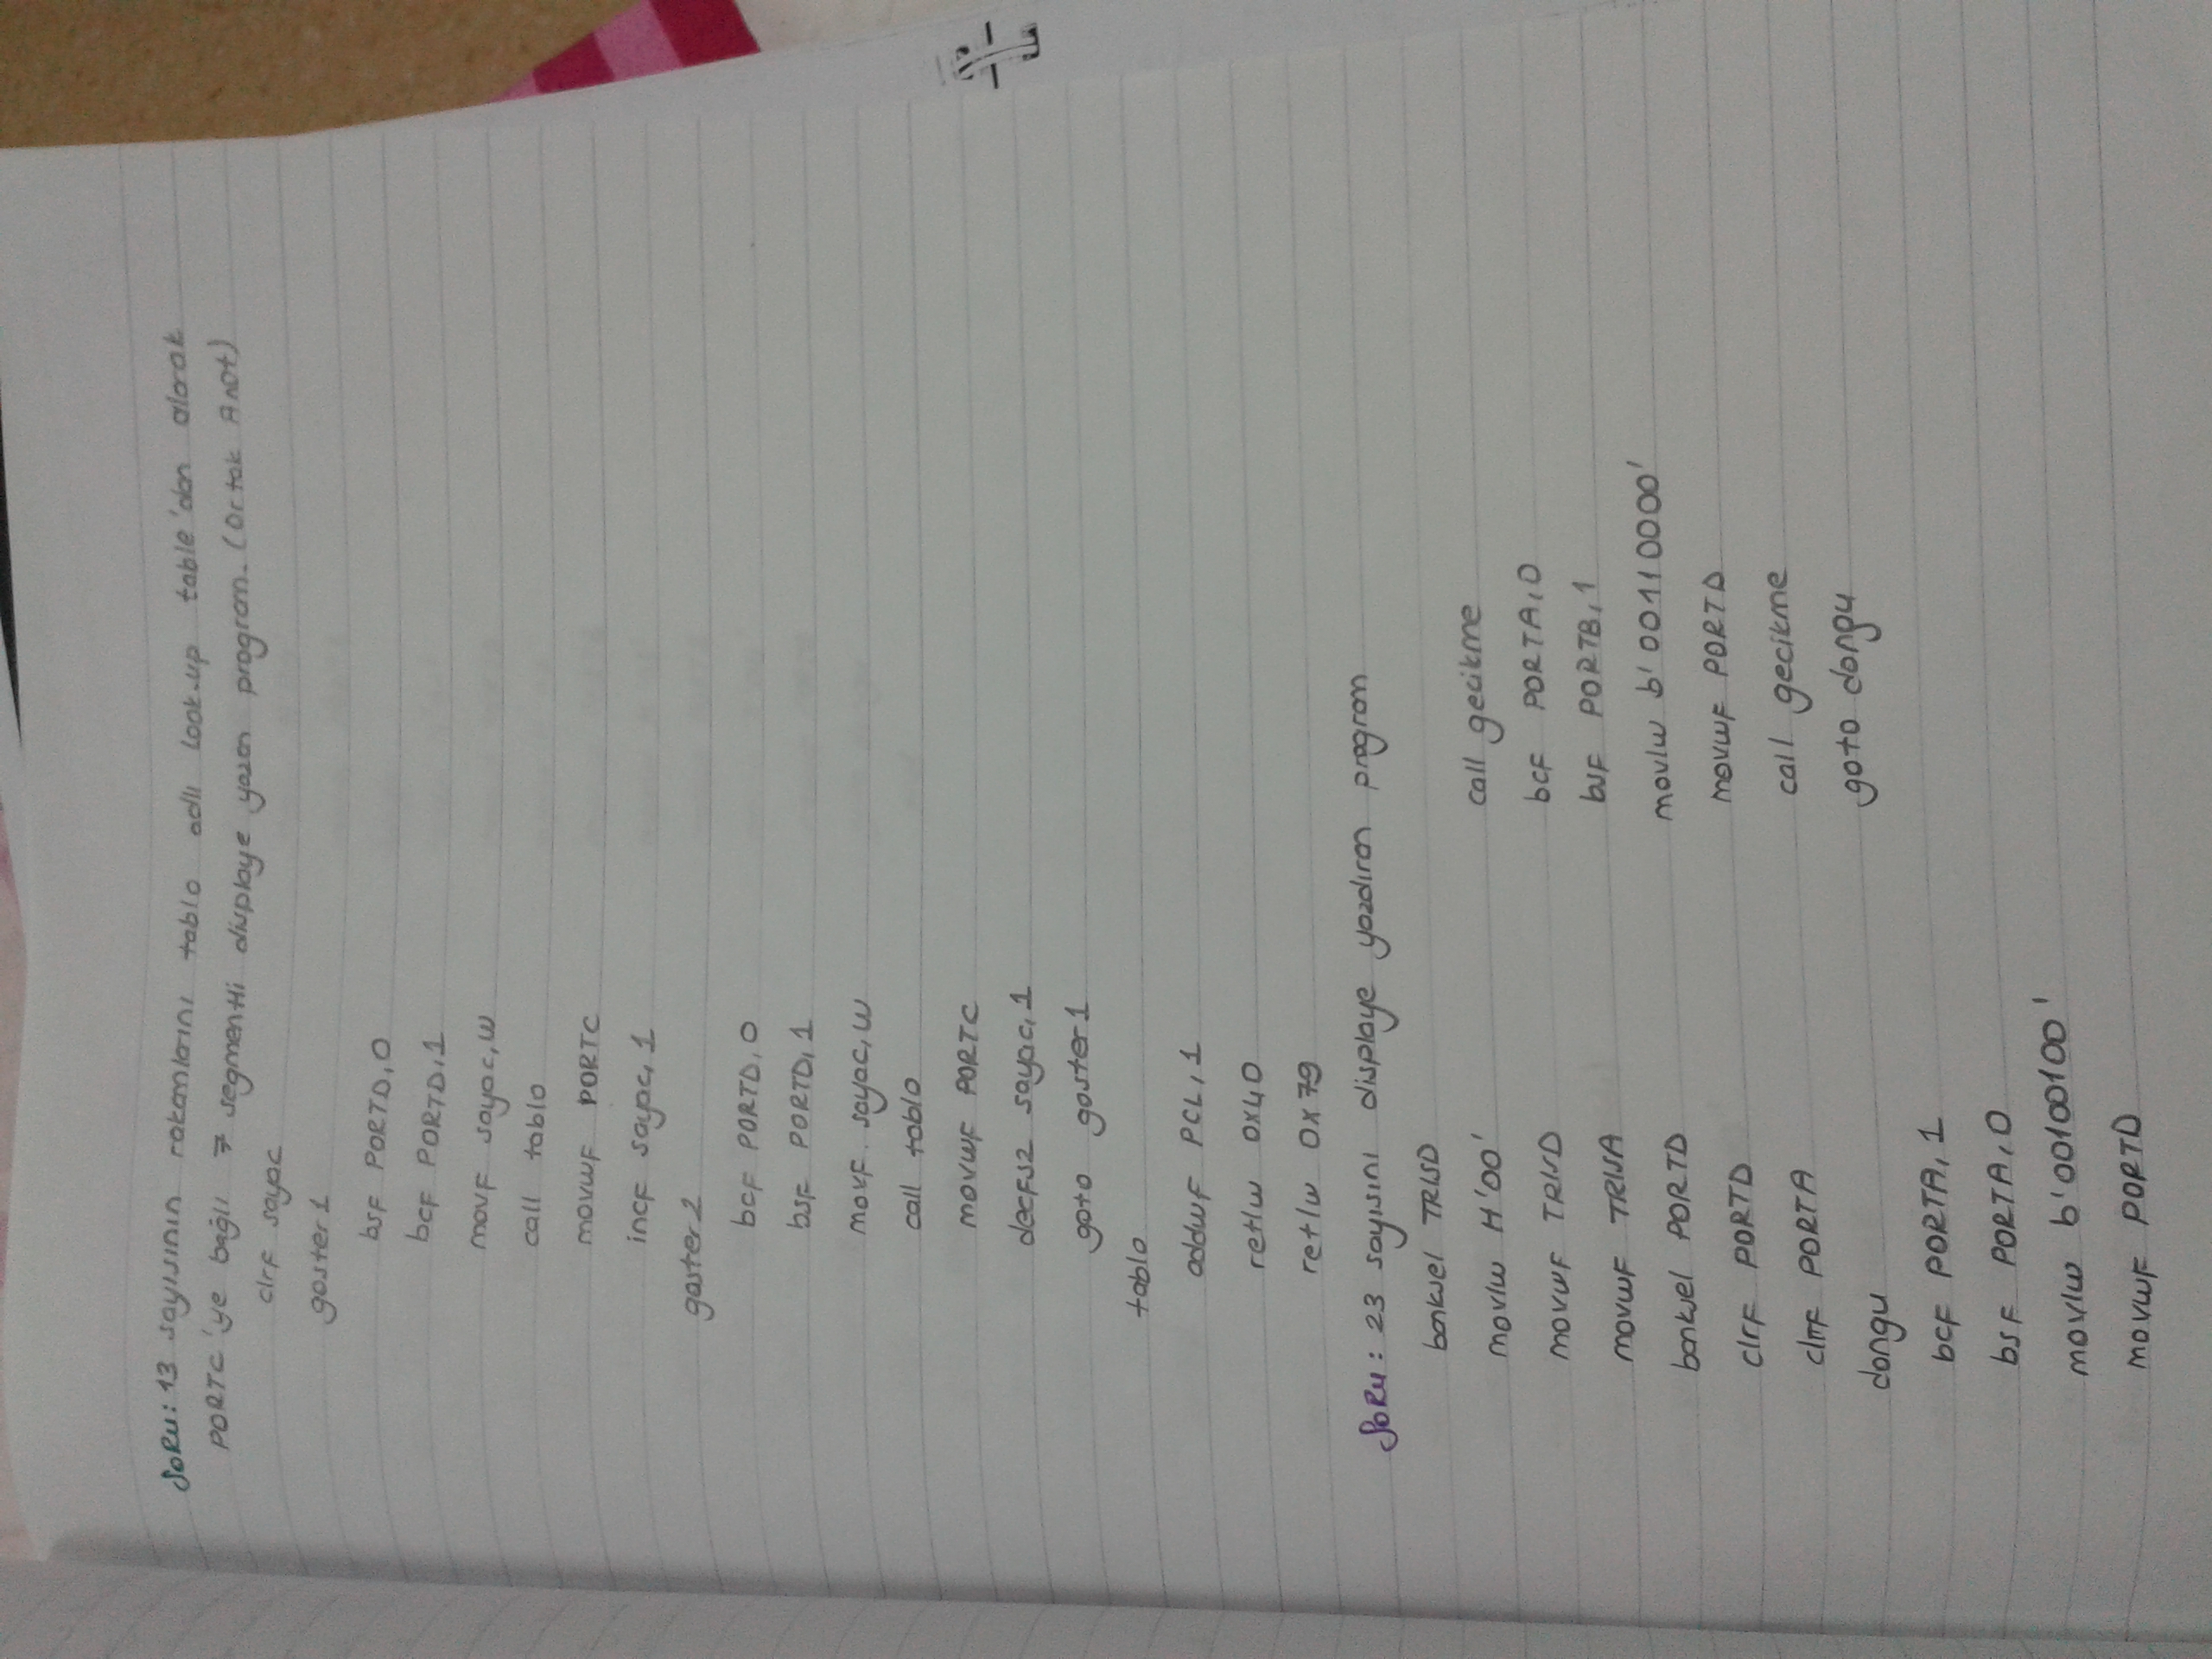 SORU: 13 sayısının rakamlarını tablo adlı look-up table'dan alarak
PORTC'ye bağlı 7 segmentli displaye yazan program. (Ortak Anot)
clrf sayac
goster1
bsf PORTD,0
bcf PORTD,1
movf sayac,w
call tablo
movwf PORTC
incf sayac,1
goster2
bcf PORTD,0
bsf PORTD,1
movf sayac,w
call tablo
movwf PORTC
decfsz sayac,1
goto goster1
tablo
addwf PCL,1
retlw 0x40
retlw 0x79
SORU: 23 sayısını displaye yazdıran program
banksel TRISD
movlw H'00'
movwf TRISD
movwf TRISA
banksel PORTD
clrf PORTD
clrf PORTA
dongu
bcf PORTA,1
bsf PORTA,0
movlw b'00100100'
movwf PORTD
call gecikme
bcf PORTA,0
bsf PORTB,1
movlw b'00110000'
movwf PORTD
call gecikme
goto dongu